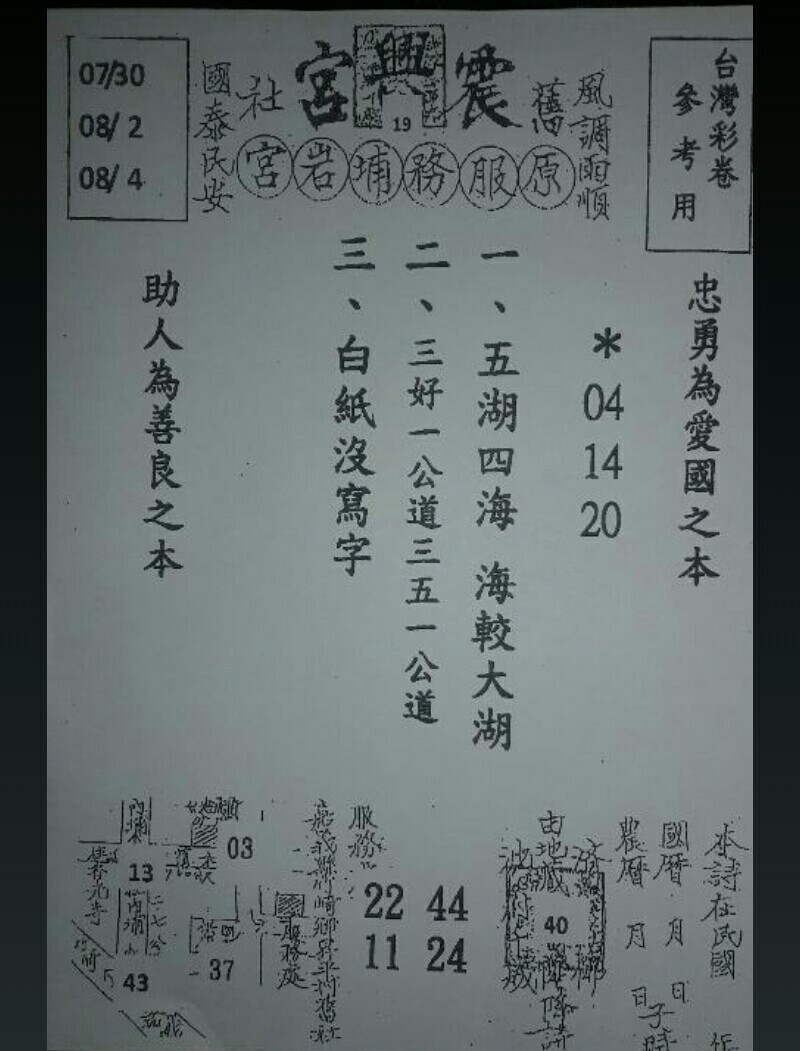 台灣彩卷
參考用
風調雨順
舊
震興宮
19
社
國泰民安
原服務埔岩宮
07/30
08/2
08/4
忠勇為愛國之本
*
04
14
20
一、五湖四海 海較大湖
二、三好一公道三五一公道
三、白紙沒寫字
助人為善良之本
本詩在民國 年
國曆 月 日
農曆 月 日子時
由地藏
40
服務
22 44
11 24
嘉義縣竹崎鄉昇平村舊社
服務處
03
13
37
43
內埔